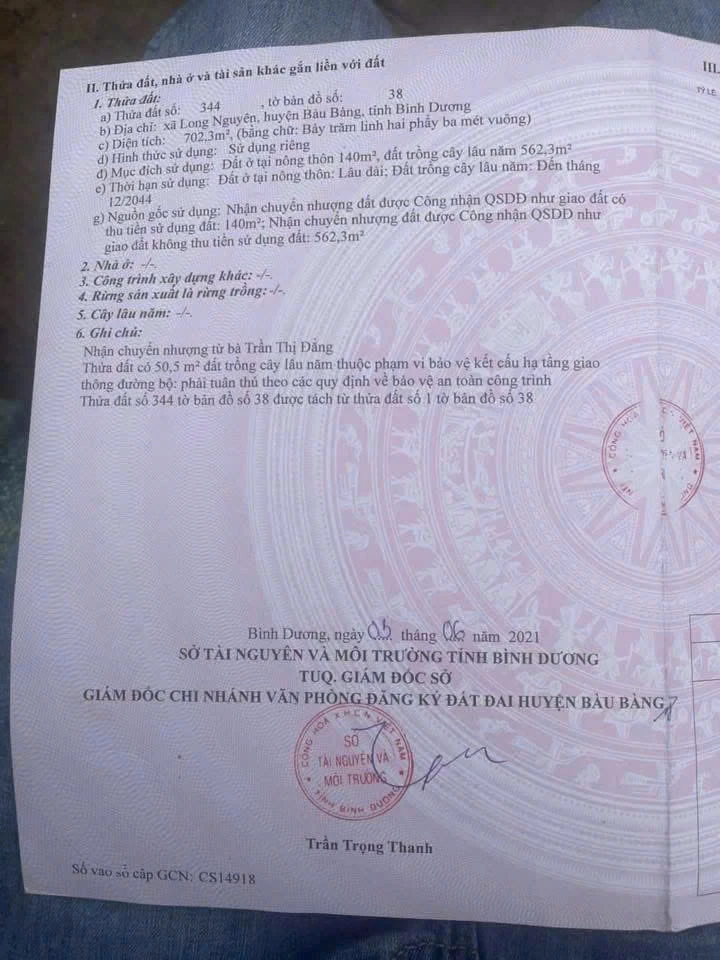 II. Thửa đất, nhà ở và tài sản khác gắn liền với đất
1. Thửa đất:
a) Thửa đất số: 344 , tờ bản đồ số: 38
b) Địa chỉ: xã Long Nguyên, huyện Bàu Bàng, tỉnh Bình Dương
c) Diện tích: 702,3m², (bằng chữ: Bảy trăm linh hai phẩy ba mét vuông)
d) Hình thức sử dụng: Sử dụng riêng
đ) Mục đích sử dụng: Đất ở tại nông thôn 140m², đất trồng cây lâu năm 562,3m²
e) Thời hạn sử dụng: Đất ở tại nông thôn: Lâu dài; Đất trồng cây lâu năm: Đến tháng
12/2044
g) Nguồn gốc sử dụng: Nhận chuyển nhượng đất được Công nhận QSDĐ như giao đất có
thu tiền sử dụng đất: 140m²; Nhận chuyển nhượng đất được Công nhận QSDĐ như
giao đất không thu tiền sử dụng đất: 562,3m²
2. Nhà ở: -/-.
3. Công trình xây dựng khác: -/-.
4. Rừng sản xuất là rừng trồng: -/-.
5. Cây lâu năm: -/-.
6. Ghi chú:
Nhận chuyển nhượng từ bà Trần Thị Đẳng
Thửa đất có 50,5 m² đất trồng cây lâu năm thuộc phạm vi bảo vệ kết cấu hạ tầng giao
thông đường bộ: phải tuân thủ theo các quy định về bảo vệ an toàn công trình
Thửa đất số 344 tờ bản đồ số 38 được tách từ thửa đất số 1 tờ bản đồ số 38
III.
TỶ LỆ
CỘNG HÒA X VIỆT NAM
Bình Dương, ngày 03 tháng 06 năm 2021
SỞ TÀI NGUYÊN VÀ MÔI TRƯỜNG TỈNH BÌNH DƯƠNG
TUQ. GIÁM ĐỐC SỞ
GIÁM ĐỐC CHI NHÁNH VĂN PHÒNG ĐĂNG KÝ ĐẤT ĐAI HUYỆN BÀU BÀNG
CỘNG HÒA X.H.C.N VIỆT NAM
SỞ
TÀI NGUYÊN VÀ
MÔI TRƯỜNG
TỈNH BÌNH DƯƠNG
Trần Trọng Thanh
Số vào sổ cấp GCN: CS14918